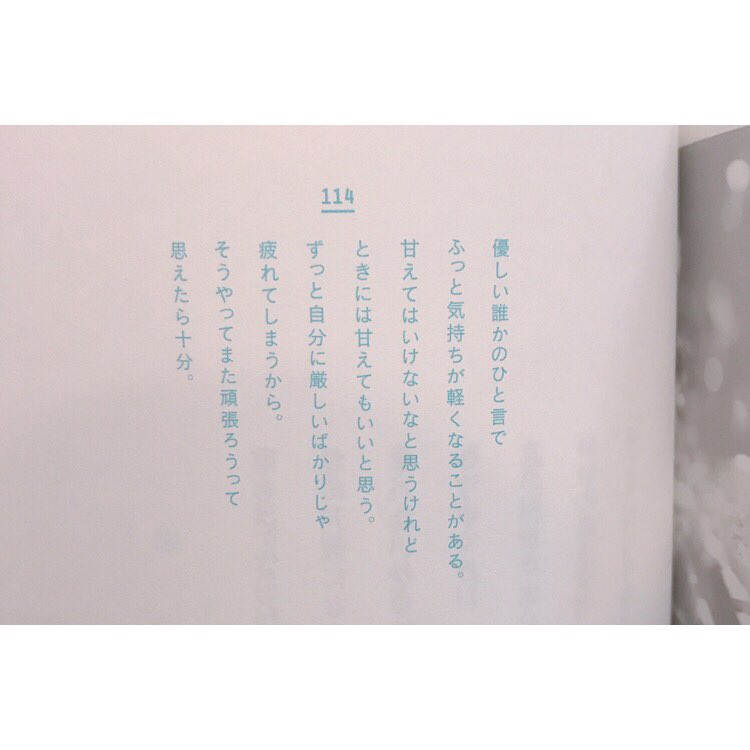 114
優しい誰かのひと言で
ふっと気持ちが軽くなることがある。
甘えてはいけないなと思うけれど
ときには甘えてもいいと思う。
ずっと自分に厳しいばかりじゃ
疲れてしまうから。
そうやってまた頑張ろうって
思えたら十分。